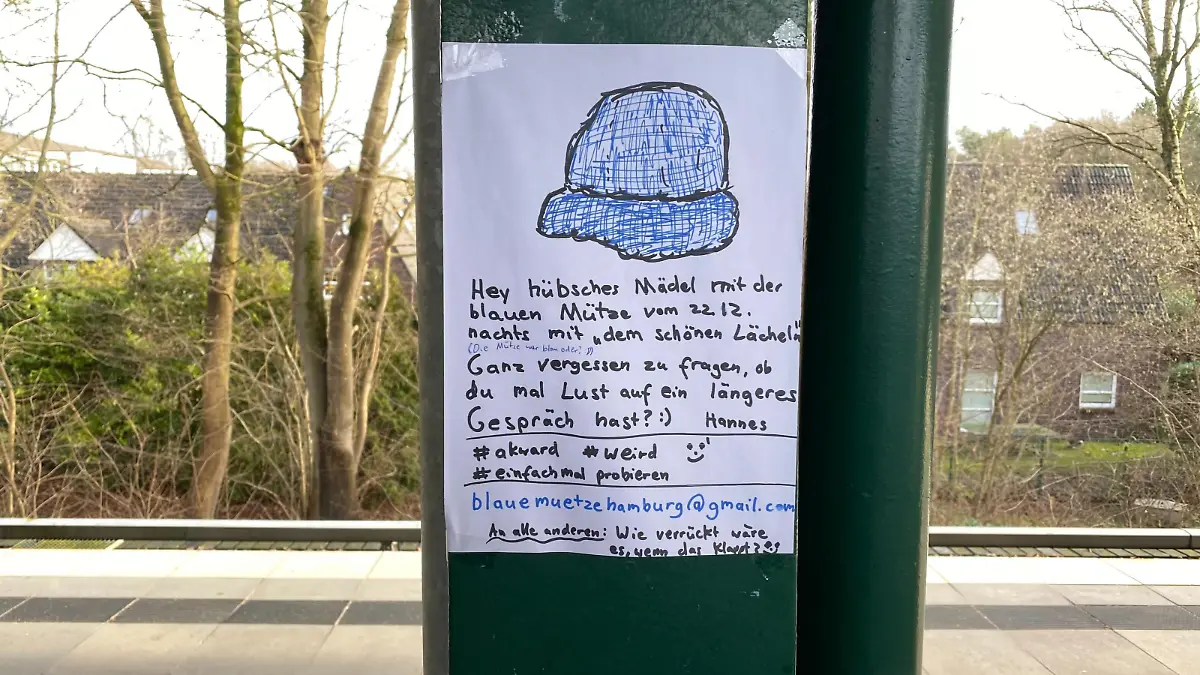 Hey hübsches Mädel mit der
blauen Mütze vom 22.12.
nachts mit „dem schönen Lächeln"
(Die Mütze war blau oder? ;))
Ganz vergessen zu fragen, ob
du mal Lust auf ein längeres
Gespräch hast? :) Hannes
#akward #weird
#einfachmal probieren
blauemuetzehamburg@gmail.com
An alle anderen: Wie verrückt wäre
es, wenn das klappt?